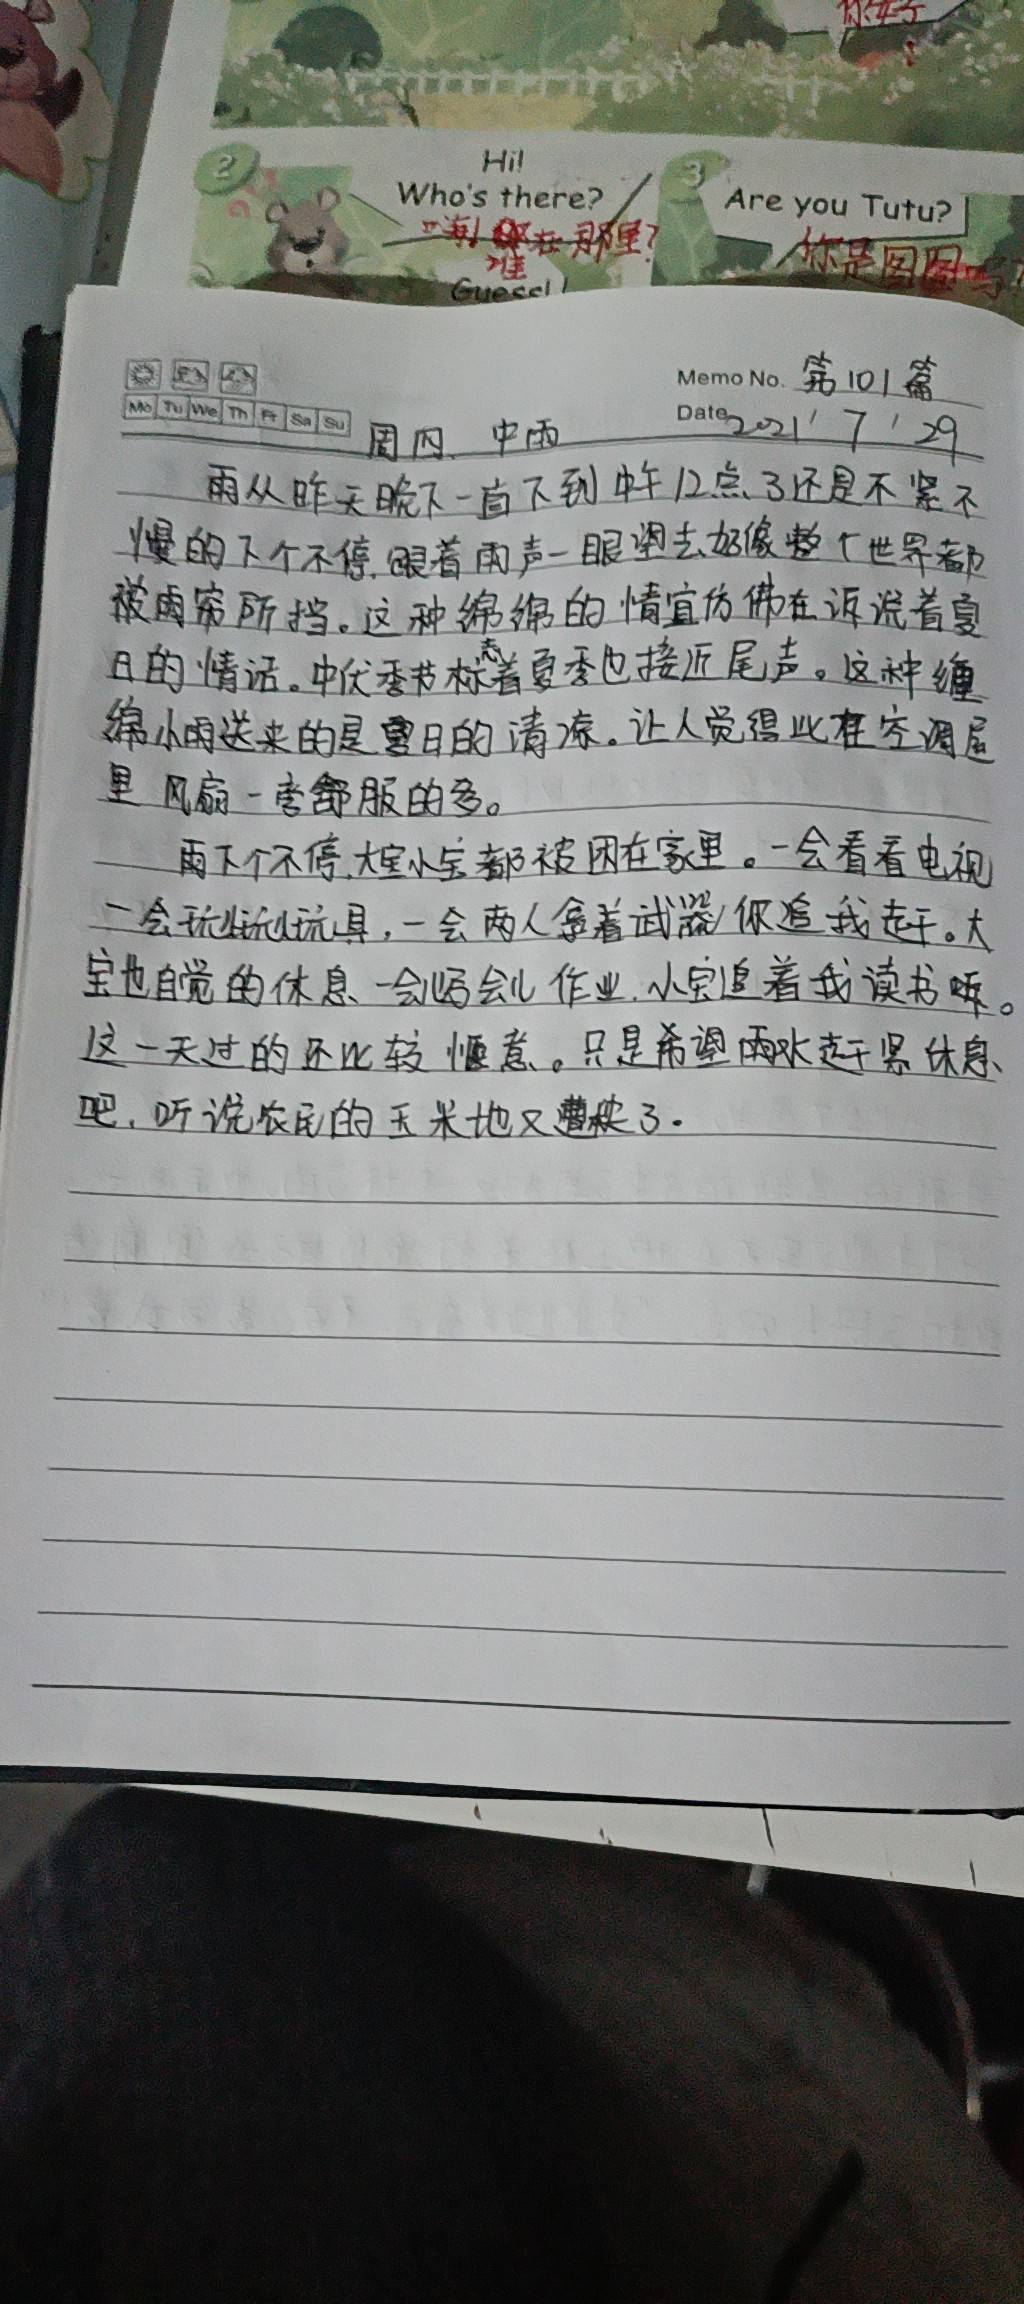 你好
2
Hi!
Who's there?
嗨！谁在那里？
3
Are you Tutu?
你是图图吗？
Guess!
Memo No. 第101篇
Mo Tu We Th Fr Sa Su
Date 2021 7 29
周四 中雨
雨从昨天晚下一直下到中午12点了还是不紧不
慢的下个不停.跟着雨声一眼望去好像整个世界都
被雨帘所挡。这种绵绵的情宜仿佛在诉说着夏
日的情话。中伏季节标志着夏季也接近尾声。这种缠
绵小雨送来的是夏日的清凉。让人觉得比在空调屋
里风扇一旁舒服的多。
雨下个不停.大宝小宝都被困在家里。一会看看电视
一会玩玩玩具,一会两人拿着武器你追我赶。大
宝也自觉的休息一会写会儿作业.小宝追着我读书听。
这一天过的还比较惬意。只是希望雨水赶紧休息
吧.听说农民的玉米地又遭秧了.